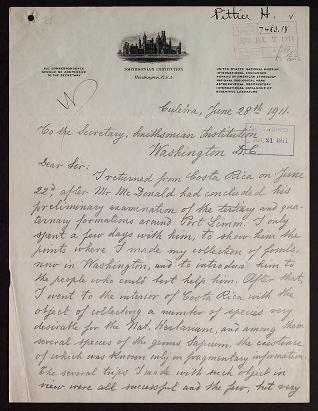 Pittier H.
7463.18
1911
ALL CORRESPONDENCE
SHOULD BE ADDRESSED
TO THE SECRETARY
SMITHSONIAN INSTITUTION
Washington, U.S.A.
UNITED STATES NATIONAL MUSEUM
INTERNATIONAL EXCHANGES
BUREAU OF AMERICAN ETHNOLOGY
NATIONAL ZOOLOGICAL PARK
ASTROPHYSICAL OBSERVATORY
INTERNATIONAL CATALOGUE OF
SCIENTIFIC LITERATURE
Culebra, June 28th 1911.
To the Secretary, Smithsonian Institution
Washington D.C.
21 1911
Dear Sir:
I returned from Costa Rica on June
22d after Mr Mc Donald had concluded his
preliminary examination of the tertiary and qua-
ternary formations around Port Limon. I only
spent a few days with him, to show him the
points where I made my collection of fossils
now in Washington, and to introduce him to
the people who could best help him. After that,
I went to the interior of Costa Rica with the
object of collecting a number of species very
desirable for the Nat. Herbarium, and among them
several species of the genus Sapium, the existence
of which was known only in fragmentary information.
The several trips I made with such object in
view were all successful and the few, but very